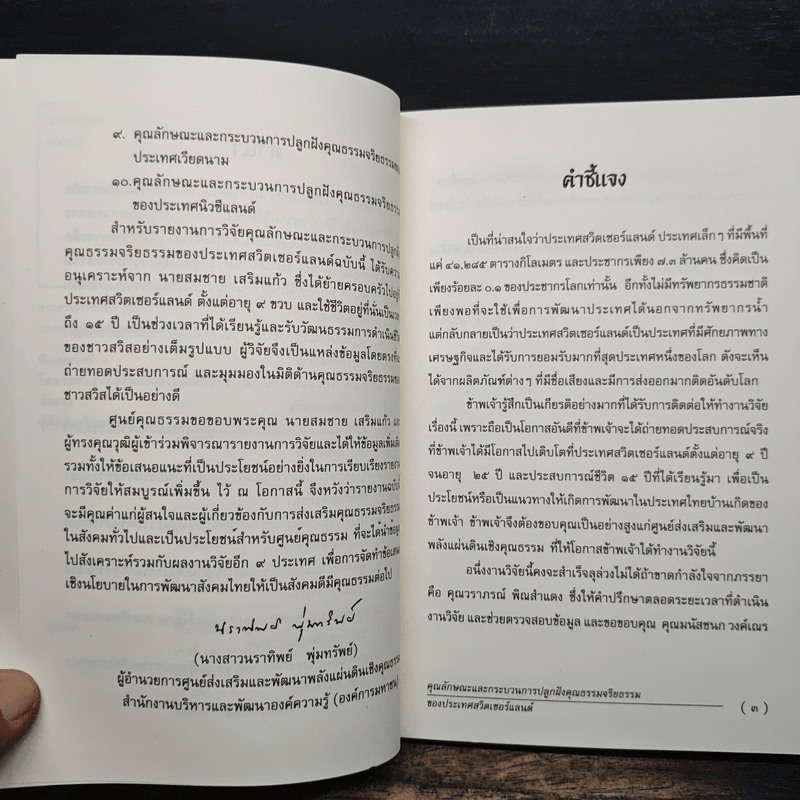 ๙. คุณลักษณะและกระบวนการปลูกฝังคุณธรรมจริยธรรม
ประเทศเวียดนาม
๑๐.คุณลักษณะและกระบวนการปลูกฝังคุณธรรมจริยธรรม
ของประเทศนิวซีแลนด์
สำหรับรายงานการวิจัยคุณลักษณะและกระบวนการปลูกฝัง
คุณธรรมจริยธรรมของประเทศสวิตเซอร์แลนด์ฉบับนี้ ได้รับความ
อนุเคราะห์จาก นายสมชาย เสริมแก้ว ซึ่งได้ย้ายครอบครัวไปอยู่
ประเทศสวิตเซอร์แลนด์ ตั้งแต่อายุ ๙ ขวบ และใช้ชีวิตอยู่ที่นั่นเป็นเวลา
ถึง ๑๕ ปี เป็นช่วงเวลาที่ได้เรียนรู้และรับวัฒนธรรมการดำเนินชีวิต
ของชาวสวิสอย่างเต็มรูปแบบ ผู้วิจัยจึงเป็นแหล่งข้อมูลโดยตรง
ถ่ายทอดประสบการณ์ และมุมมองในมิติด้านคุณธรรมจริยธรรมของ
ชาวสวิสได้เป็นอย่างดี
ศูนย์คุณธรรมขอขอบพระคุณ นายสมชาย เสริมแก้ว และ
ผู้ทรงคุณวุฒิผู้เข้าร่วมพิจารณารายงานการวิจัยและได้ให้ข้อมูลเพิ่มเติม
รวมทั้งให้ข้อเสนอแนะที่เป็นประโยชน์อย่างยิ่งในการเรียบเรียงรายงาน
การวิจัยให้สมบูรณ์เพิ่มขึ้น ไว้ ณ โอกาสนี้ จึงหวังว่ารายงานฉบับนี้
จะมีคุณค่าแก่ผู้สนใจและผู้เกี่ยวข้องกับการส่งเสริมคุณธรรมจริยธรรม
ในสังคมทั่วไปและเป็นประโยชน์สำหรับศูนย์คุณธรรม ที่จะได้นำข้อมูล
ไปสังเคราะห์รวมกับผลงานวิจัยอีก ๙ ประเทศ เพื่อการจัดทำข้อเสนอ
เชิงนโยบายในการพัฒนาสังคมไทยให้เป็นสังคมดีมีคุณธรรมต่อไป
นราทิพย์ พุ่มทรัพย์
(นางสาวนราทิพย์ พุ่มทรัพย์)
ผู้อำนวยการศูนย์ส่งเสริมและพัฒนาพลังแผ่นดินเชิงคุณธรรม
สำนักงานบริหารและพัฒนาองค์ความรู้ (องค์การมหาชน)
คำชี้แจง
เป็นที่น่าสนใจว่าประเทศสวิตเซอร์แลนด์ ประเทศเล็กๆ ที่มีพื้นที่
แค่ ๔๑,๒๘๕ ตารางกิโลเมตร และประชากรเพียง ๗.๓ ล้านคน ซึ่งคิดเป็น
เพียงร้อยละ ๐.๑ ของประชากรโลกเท่านั้น อีกทั้งไม่มีทรัพยากรธรรมชาติ
เพียงพอที่จะใช้เพื่อการพัฒนาประเทศได้นอกจากทรัพยากรน้ำ
แต่กลับกลายเป็นว่าประเทศสวิตเซอร์แลนด์เป็นประเทศที่มีศักยภาพทาง
เศรษฐกิจและได้รับการยอมรับมากที่สุดประเทศหนึ่งของโลก ดังจะเห็น
ได้จากผลิตภัณฑ์ต่างๆ ที่มีชื่อเสียงและมีการส่งออกมากติดอันดับโลก
ข้าพเจ้ารู้สึกเป็นเกียรติอย่างมากที่ได้รับการติดต่อให้ทำงานวิจัย
เรื่องนี้ เพราะถือเป็นโอกาสอันดีที่ข้าพเจ้าจะได้ถ่ายทอดประสบการณ์จริง
ที่ข้าพเจ้าได้มีโอกาสไปเติบโตที่ประเทศสวิตเซอร์แลนด์ตั้งแต่อายุ ๙ ปี
จนอายุ ๒๕ ปี และประสบการณ์ชีวิต ๑๕ ปีที่ได้เรียนรู้มา เพื่อเป็น
ประโยชน์หรือเป็นแนวทางให้เกิดการพัฒนาในประเทศไทยบ้านเกิดของ
ข้าพเจ้า ข้าพเจ้าจึงต้องขอบคุณเป็นอย่างสูงแก่ศูนย์ส่งเสริมและพัฒนา
พลังแผ่นดินเชิงคุณธรรม ที่ให้โอกาสข้าพเจ้าได้ทำงานวิจัยนี้
อนึ่งงานวิจัยนี้คงจะสำเร็จลุล่วงไม่ได้ถ้าขาดกำลังใจจากภรรยา
คือ คุณวราภรณ์ พิณสำแดง ซึ่งให้คำปรึกษาตลอดระยะเวลาที่ดำเนิน
งานวิจัย และช่วยตรวจสอบข้อมูล และขอขอบคุณ คุณมนัสชนก วงค์เณร
คุณลักษณะและกระบวนการปลูกฝังคุณธรรมจริยธรรม
ของประเทศสวิตเซอร์แลนด์
( ๓ )